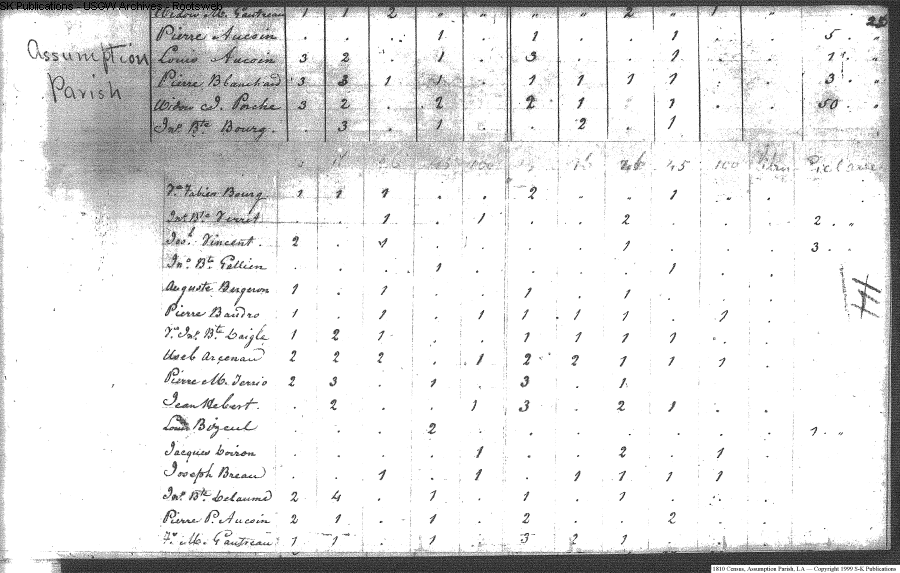 SK Publications - USGW Archives - Rootsweb
25
Assumption
Parish
Widow M. Gautreau 1 1 2 " " " " 2 " 1 "
Pierre Aucoin . . . 1 . 1 . . 1 . . 5 . "
Louis Aucoin 3 2 . 1 . 3 . . 1 . . 1 "
Pierre Blanchard 3 3 1 1 . 1 1 1 1 . . 3 . "
Widow J. Porche 3 2 . 2 . 2 1 . 1 . . 50 . "
Jn. Bte Bourg . . 3 . 1 . . 2 . 1
16 26 45 100
Ve Fabien Bourg 1 1 1 . . 2 " " 1 " .
Jn. Bte Verret . . 1 . 1 . . 2 . . . 2 . "
Josh Vincent . 2 . 1 . . . . 1 . . . 3 . .
Jno Bte Gellien . . . 1 . . . . 1 . .
Auguste Bergeron 1 . 1 . . 1 . 1 . . .
Pierre Baudro 1 . 1 . 1 1 1 1 . 1 .
Ve Jn. Bte Daigle 1 2 1 . . 1 1 1 1 . .
Useb Arcenau 2 2 2 . 1 2 2 1 1 1 .
Pierre M. Terrio 2 3 . 1 . 3 . 1 . . .
Jean Hebert . . 2 . . 1 3 . 2 1 . .
Louis Bozeul . . . 2 . . . . . . . 1 . "
Jacques Loiron . . . . 1 . . 2 . 1 .
Joseph Breau . . 1 . 1 . 1 1 1 1 .
Jn. Bte Delaune 2 4 . 1 . 1 . 1 . . .
Pierre P. Aucoin 2 1 . 1 . 2 . . 2 . .
Ve M. Gautreau 1 1 . 1 . 3 2 1 . . .
1810 Census, Assumption Parish, LA — Copyright 1999 S-K Publications